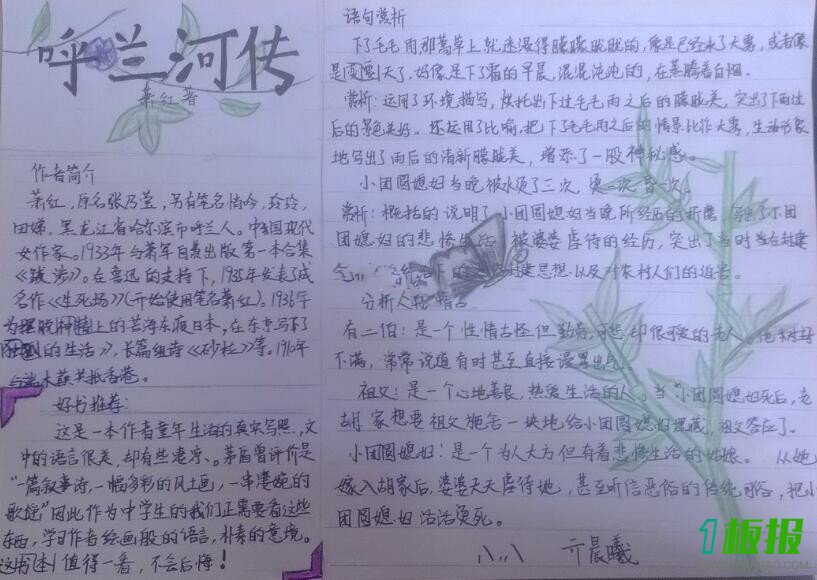 呼兰河传
萧红著
作者简介
萧红,原名张乃莹,另有笔名悄吟,玲玲,
田娣,黑龙江省哈尔滨市呼兰人。中国现代
女作家。1933年与萧军自费出版第一本合集
《跋涉》。在鲁迅的支持下,1935年发表了成
名作《生死场》(开始使用笔名萧红)。1936年
为摆脱精神上的苦海东渡日本,在东京写下了
的生活》,长篇组诗《砂粒》等。1940年
与端木蕻共抵香港。
好书推荐:
这是一本作者童年生活的真实写照,文
中的语言很美,却有些凄字、。茅盾曾评价是
“一篇叙事诗,一幅多彩的风土画,一串凄婉的
歌谣”因此作为中学生的我们正需要看这些
东西,学习作者绘画般的语言,朴素的意境。
这书本值得一看,不会后悔!
语句赏析
下了毛毛雨那蒿草上就迷漫得朦朦胧胧的,像是已经来了大雾,或者像
是要变天了,好像是下了霜的早晨,混混沌沌的,在蒸腾着白烟。
赏析:运用了环境描写,烘托出下过毛毛雨之后的朦胧美,突出了下雨过
后的景色美好。还运用了比喻,把下了毛毛雨之后的情景比作大雾,生动形象
地写出了雨后的清新朦胧美,增添了一股神秘感。
小团圆媳妇当晚被水烫了三次,烫一次,昏一次。
赏析:概括的说明了小团圆媳妇当晚所经历的折磨,写出了小团
圆媳妇的悲惨生活,被婆婆虐待的经历,突出了当时当在封建
下的封建思想以及对农村人们的迫害。
分析人物
有二伯:是一个性情古怪但勤劳,可悲却很可爱的老人。他对
不满,常常说道有时甚至直接谩骂出
祖父:是一个心地善良,热爱生活的人。当“小团圆媳妇死后,老
胡家想要祖父施舍一块地给小团圆媳妇埋藏,祖父答应了。
小团圆媳妇:是一个为人大方但有着悲惨生活的姑娘。从她
嫁入胡家后,婆婆天天虐待她,甚至听信恶俗的传统,把小
团圆媳妇活活烫死。
八.八 亓晨曦
1板报